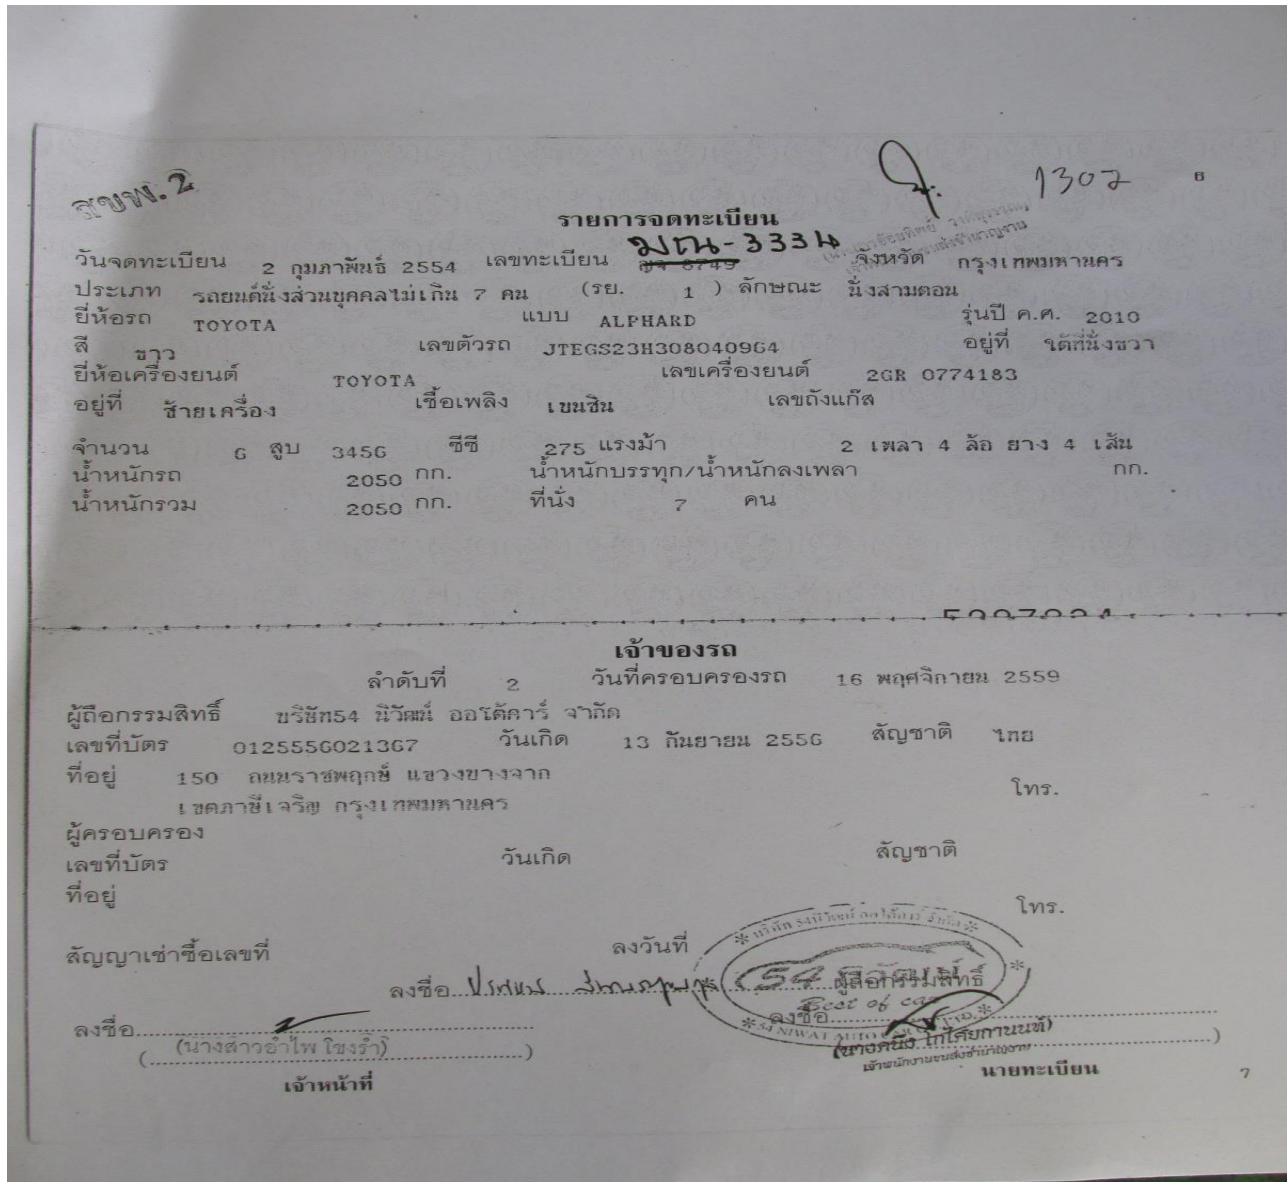 สขพ.2
1302
6
รายการจดทะเบียน
วันจดทะเบียน 2 กุมภาพันธ์ 2554 เลขทะเบียน 3334 จังหวัด กรุงเทพมหานคร
ประเภท รถยนต์นั่งส่วนบุคคลไม่เกิน 7 คน (รย. 1 ) ลักษณะ นั่งสามตอน
ยี่ห้อรถ TOYOTA แบบ ALPHARD รุ่นปี ค.ศ. 2010
สี ขาว เลขตัวรถ JTEGS23H308040964 อยู่ที่ ใต้ที่นั่งขวา
ยี่ห้อเครื่องยนต์ TOYOTA เลขเครื่องยนต์ 2GR 0774183
อยู่ที่ ซ้ายเครื่อง เชื้อเพลิง เบนซิน เลขถังแก๊ส
จำนวน 6 สูบ 3456 ซีซี 275 แรงม้า 2 เพลา 4 ล้อ ยาง 4 เส้น
น้ำหนักรถ 2050 กก. น้ำหนักบรรทุก/น้ำหนักลงเพลา กก.
น้ำหนักรวม 2050 กก. ที่นั่ง 7 คน
เจ้าของรถ
ลำดับที่ 2 วันที่ครอบครองรถ 16 พฤศจิกายน 2559
ผู้ถือกรรมสิทธิ์ บริษัท54 นิวัฒน์ ออโต้คาร์ จำกัด
เลขที่บัตร 0125556021367 วันเกิด 13 กันยายน 2556 สัญชาติ ไทย
ที่อยู่ 150 ถนนราชพฤกษ์ แขวงบางจาก โทร.
เขตภาษีเจริญ กรุงเทพมหานคร
ผู้ครอบครอง
เลขที่บัตร วันเกิด สัญชาติ
ที่อยู่ โทร.
สัญญาเช่าซื้อเลขที่ ลงวันที่
บริษัท 54นิวัฒน์ ออโต้คาร์ จำกัด
54 นิวัฒน์
Best of car
54 NIWAT AUTO CAR CO.,LTD.
ลงชื่อ ผู้ถือกรรมสิทธิ์
ลงชื่อ ลงชื่อ
(นางสาวอำไพ โชงรำ)
เจ้าพนักงานขนส่งชำนาญงาน
เจ้าหน้าที่ นายทะเบียน
7